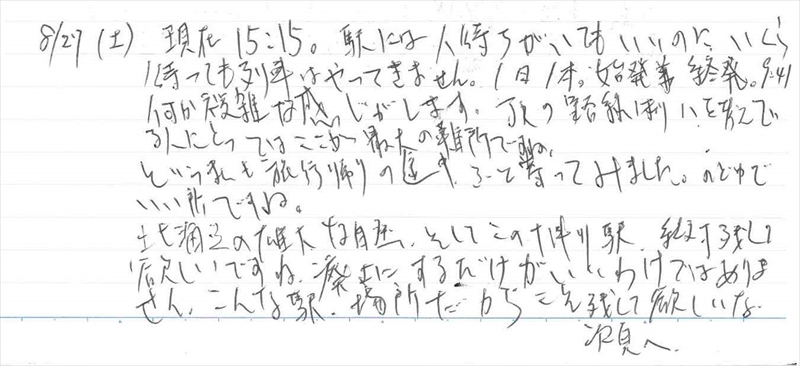 8/27 (土) 現在 15:15。駅には人待ちがいてもいいのに、いくら
待っても列車はやってきません。1日1本。始発兼終発。9:41
何か複雑な感じがします。JRの路線ぬりつぶしを考えて
る人にとってはここが最大の難所ですね。
という私も旅行帰りの途中、ふと寄ってみました。のどかで
いい所ですね。
北海道の雄大な自然、そしてこの 駅、絶対残して
欲しいですね。廃止にするだけがいいわけではありま
せん。こんな駅、場所だからこそ残して欲しいな
次頁へ